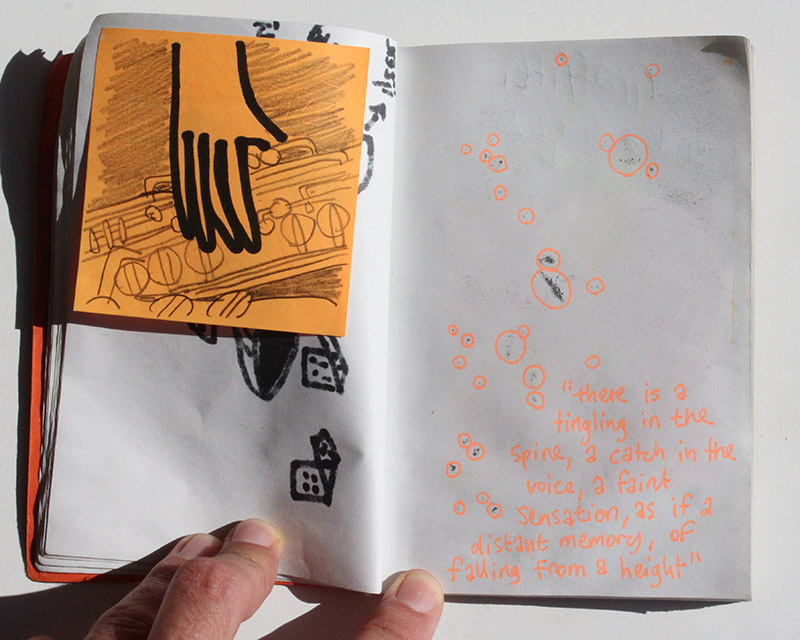 "there is a
tingling in the
spine, a catch in the
voice, a faint
sensation, as if a
distant memory, of
falling from a height"